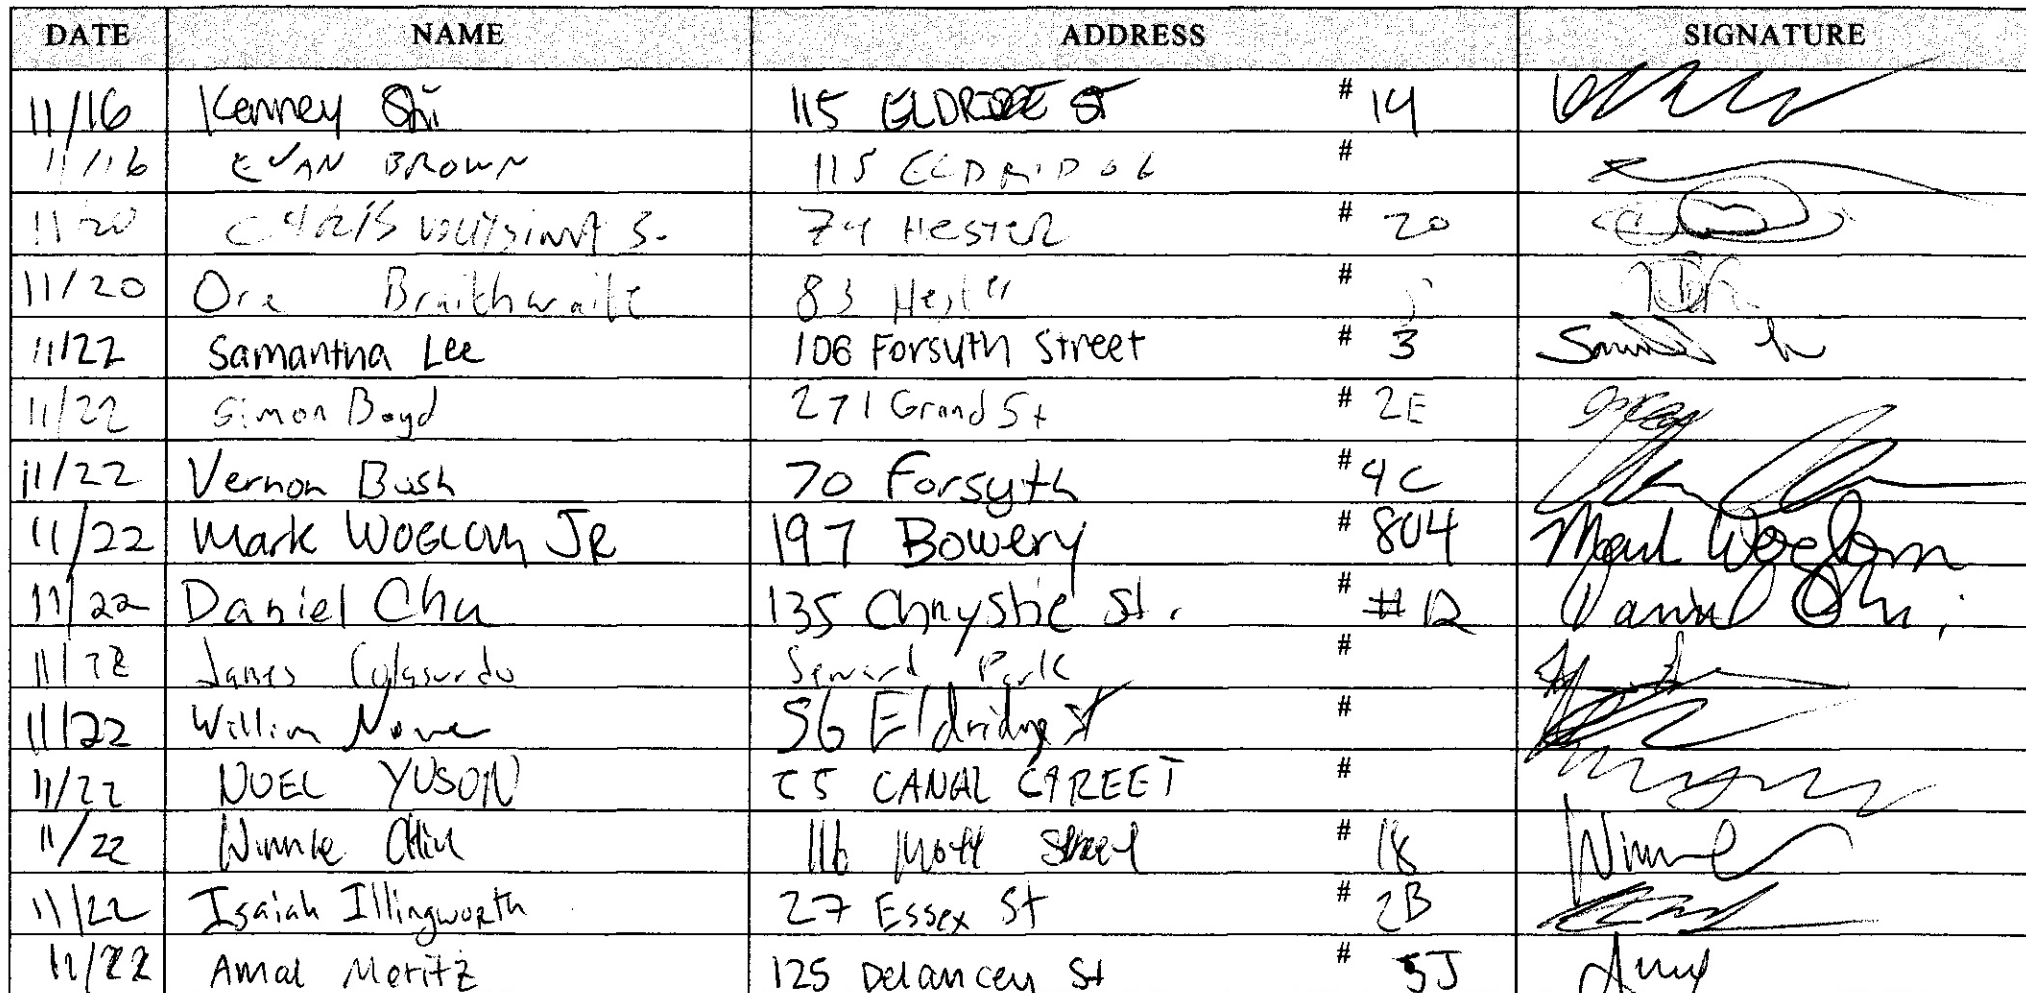 DATE NAME ADDRESS SIGNATURE
11/16 Kenney Shi 115 ELDRIDGE ST # 14
11/16 EVAN BROWN 115 ELDRIDGE #
11/20 74 HESTER # 20
11/20 Ora Braithwaite 83 Hester #
11/22 Samantha Lee 106 Forsyth Street # 3
11/22 Simon Boyd 271 Grand St # 2E
11/22 Vernon Bush 70 Forsyth # 4C
11/22 Mark WOGLOM JR 197 Bowery # 804 Mark Woglom
11/22 Daniel Chu 135 Chrystie St. # #12 Daniel Chu
11/22 James Colasurdo Seward Park #
11/22 William 56 Eldridge St #
11/22 NOEL YUSON 55 CANAL STREET #
11/22 Winnie Chiu 116 Mott Street # Winnie
11/22 Isaiah Illingworth 27 Essex St # 2B
11/22 Amal Moritz 125 Delancey St # 5J